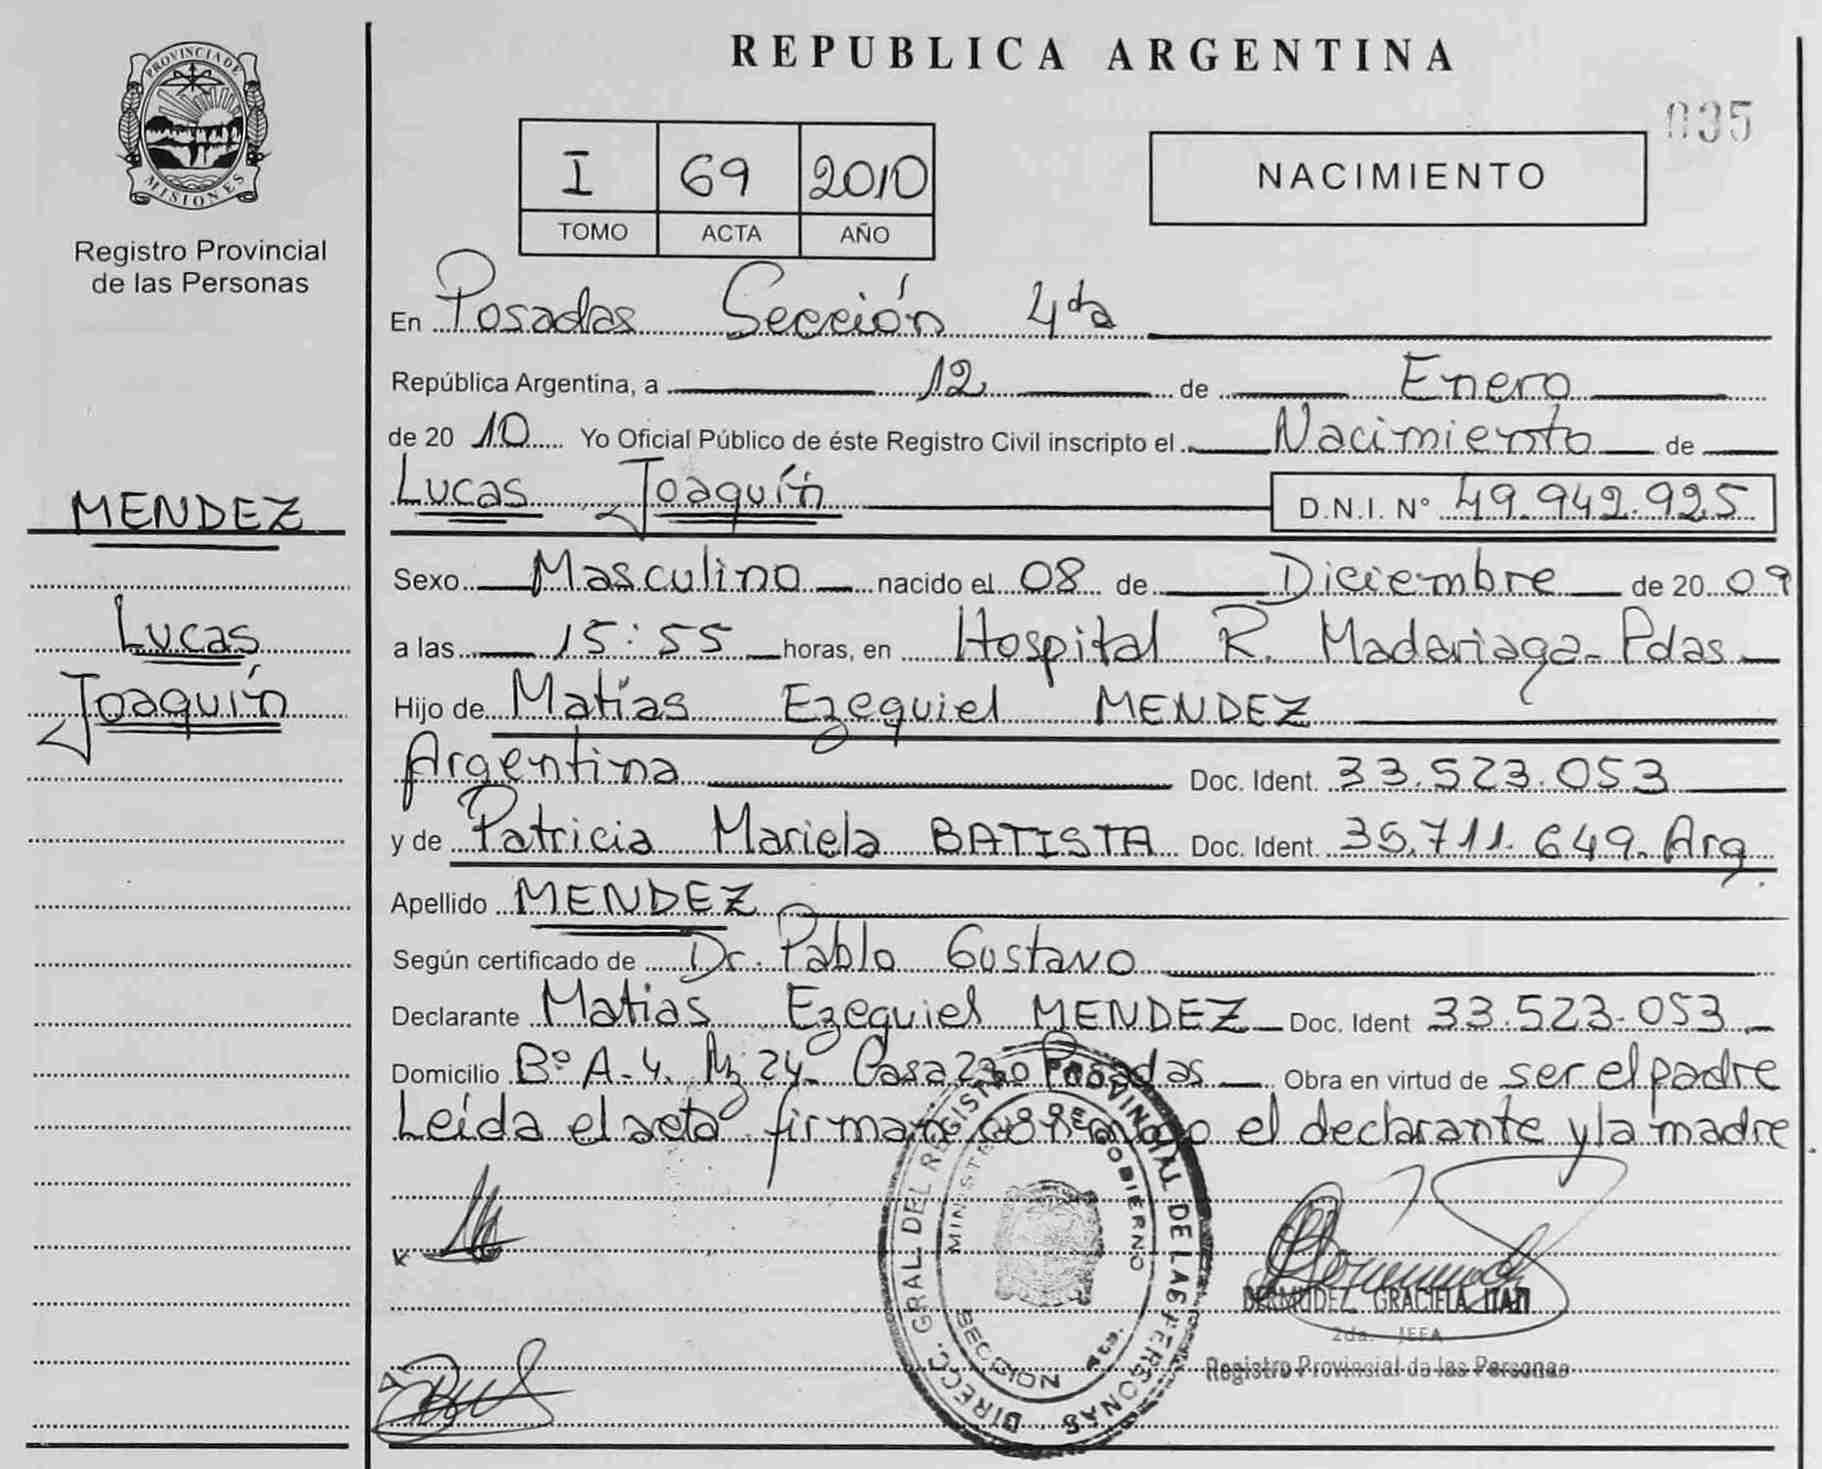 REPUBLICA ARGENTINA
035
PROVINCIA DE
MISIONES
Registro Provincial
de las Personas
I 69 2010
TOMO ACTA AÑO
NACIMIENTO
En Posadas Sección 4da
República Argentina, a 12 de Enero
de 20 10 Yo Oficial Público de éste Registro Civil inscripto el Nacimiento de
Lucas Joaquín D.N.I. N° 49.942.925
MENDEZ
Lucas
Joaquín
Sexo Masculino nacido el 08 de Diciembre de 20 09
a las 15:55 horas, en Hospital R. Madariaga - Pdas
Hijo de Matías Ezequiel MENDEZ
Argentina Doc. Ident. 33.523.053
y de Patricia Mariela BATISTA Doc. Ident. 35.711.649. Arg.
Apellido MENDEZ
Según certificado de Dr. Pablo Gustavo
Declarante Matias Ezequiel MENDEZ Doc. Ident 33.523.053
Domicilio B° A-4. Mz 24 Casa Posadas Obra en virtud de ser el padre
Leída el acta firman el declarante y la madre
DIRECC. GRAL. DEL REGISTRO PROVINCIAL DE LAS PERSONAS
MINISTERIO DE GOBIERNO
SECCION
BERMUDEZ GRACIELA ITATI
2da. JEFA
Registro Provincial de las Personas